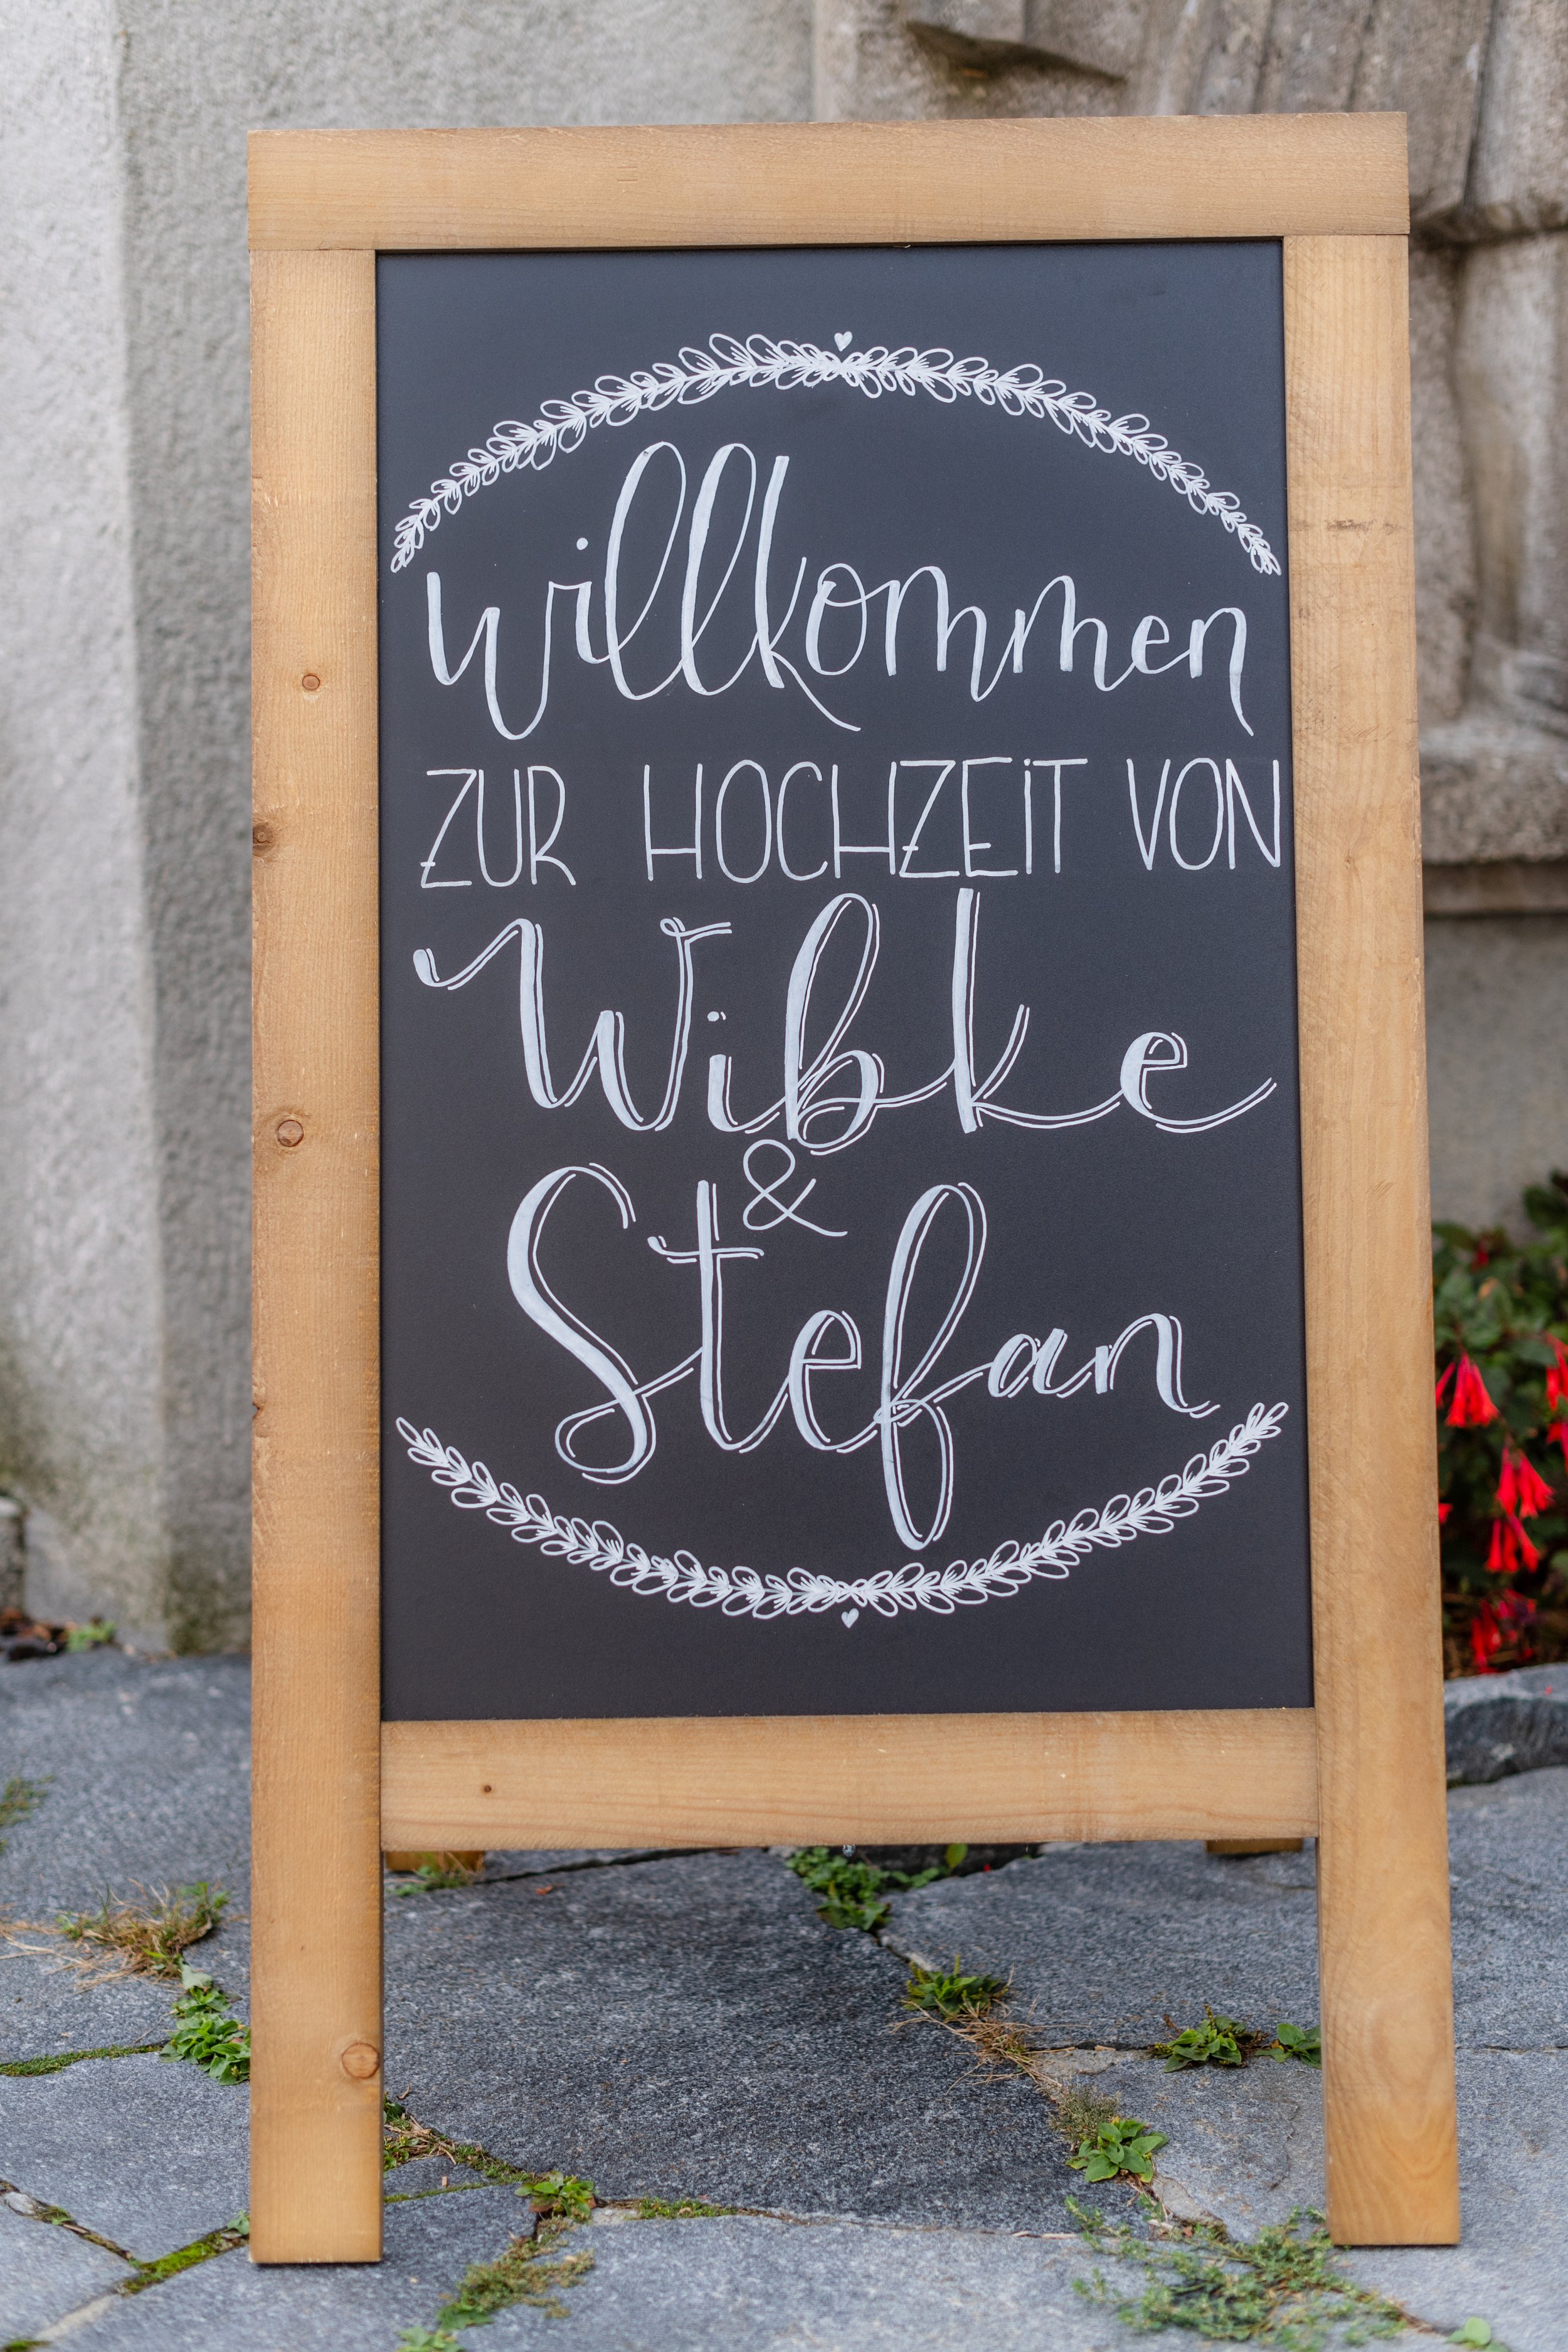 willkommen
ZUR HOCHZEiT VON
Wibke
&
Stefan